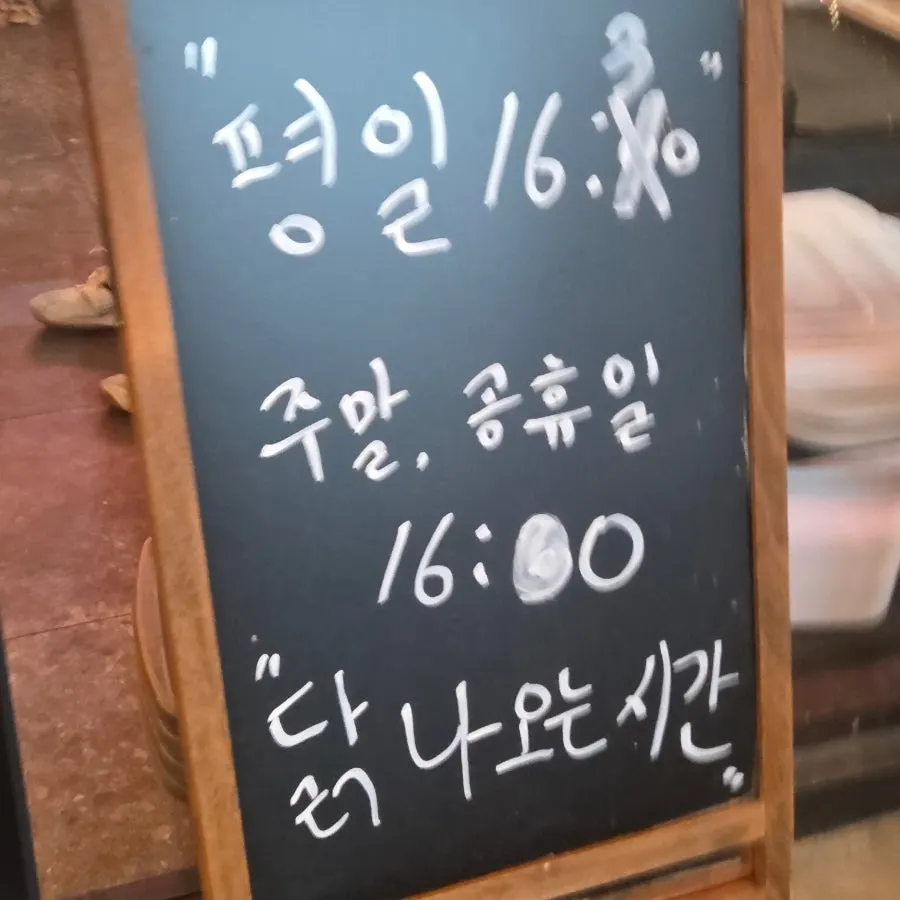 " 평일 16:30 "
주말, 공휴일
16:00
" 닭 나오는 시간 "